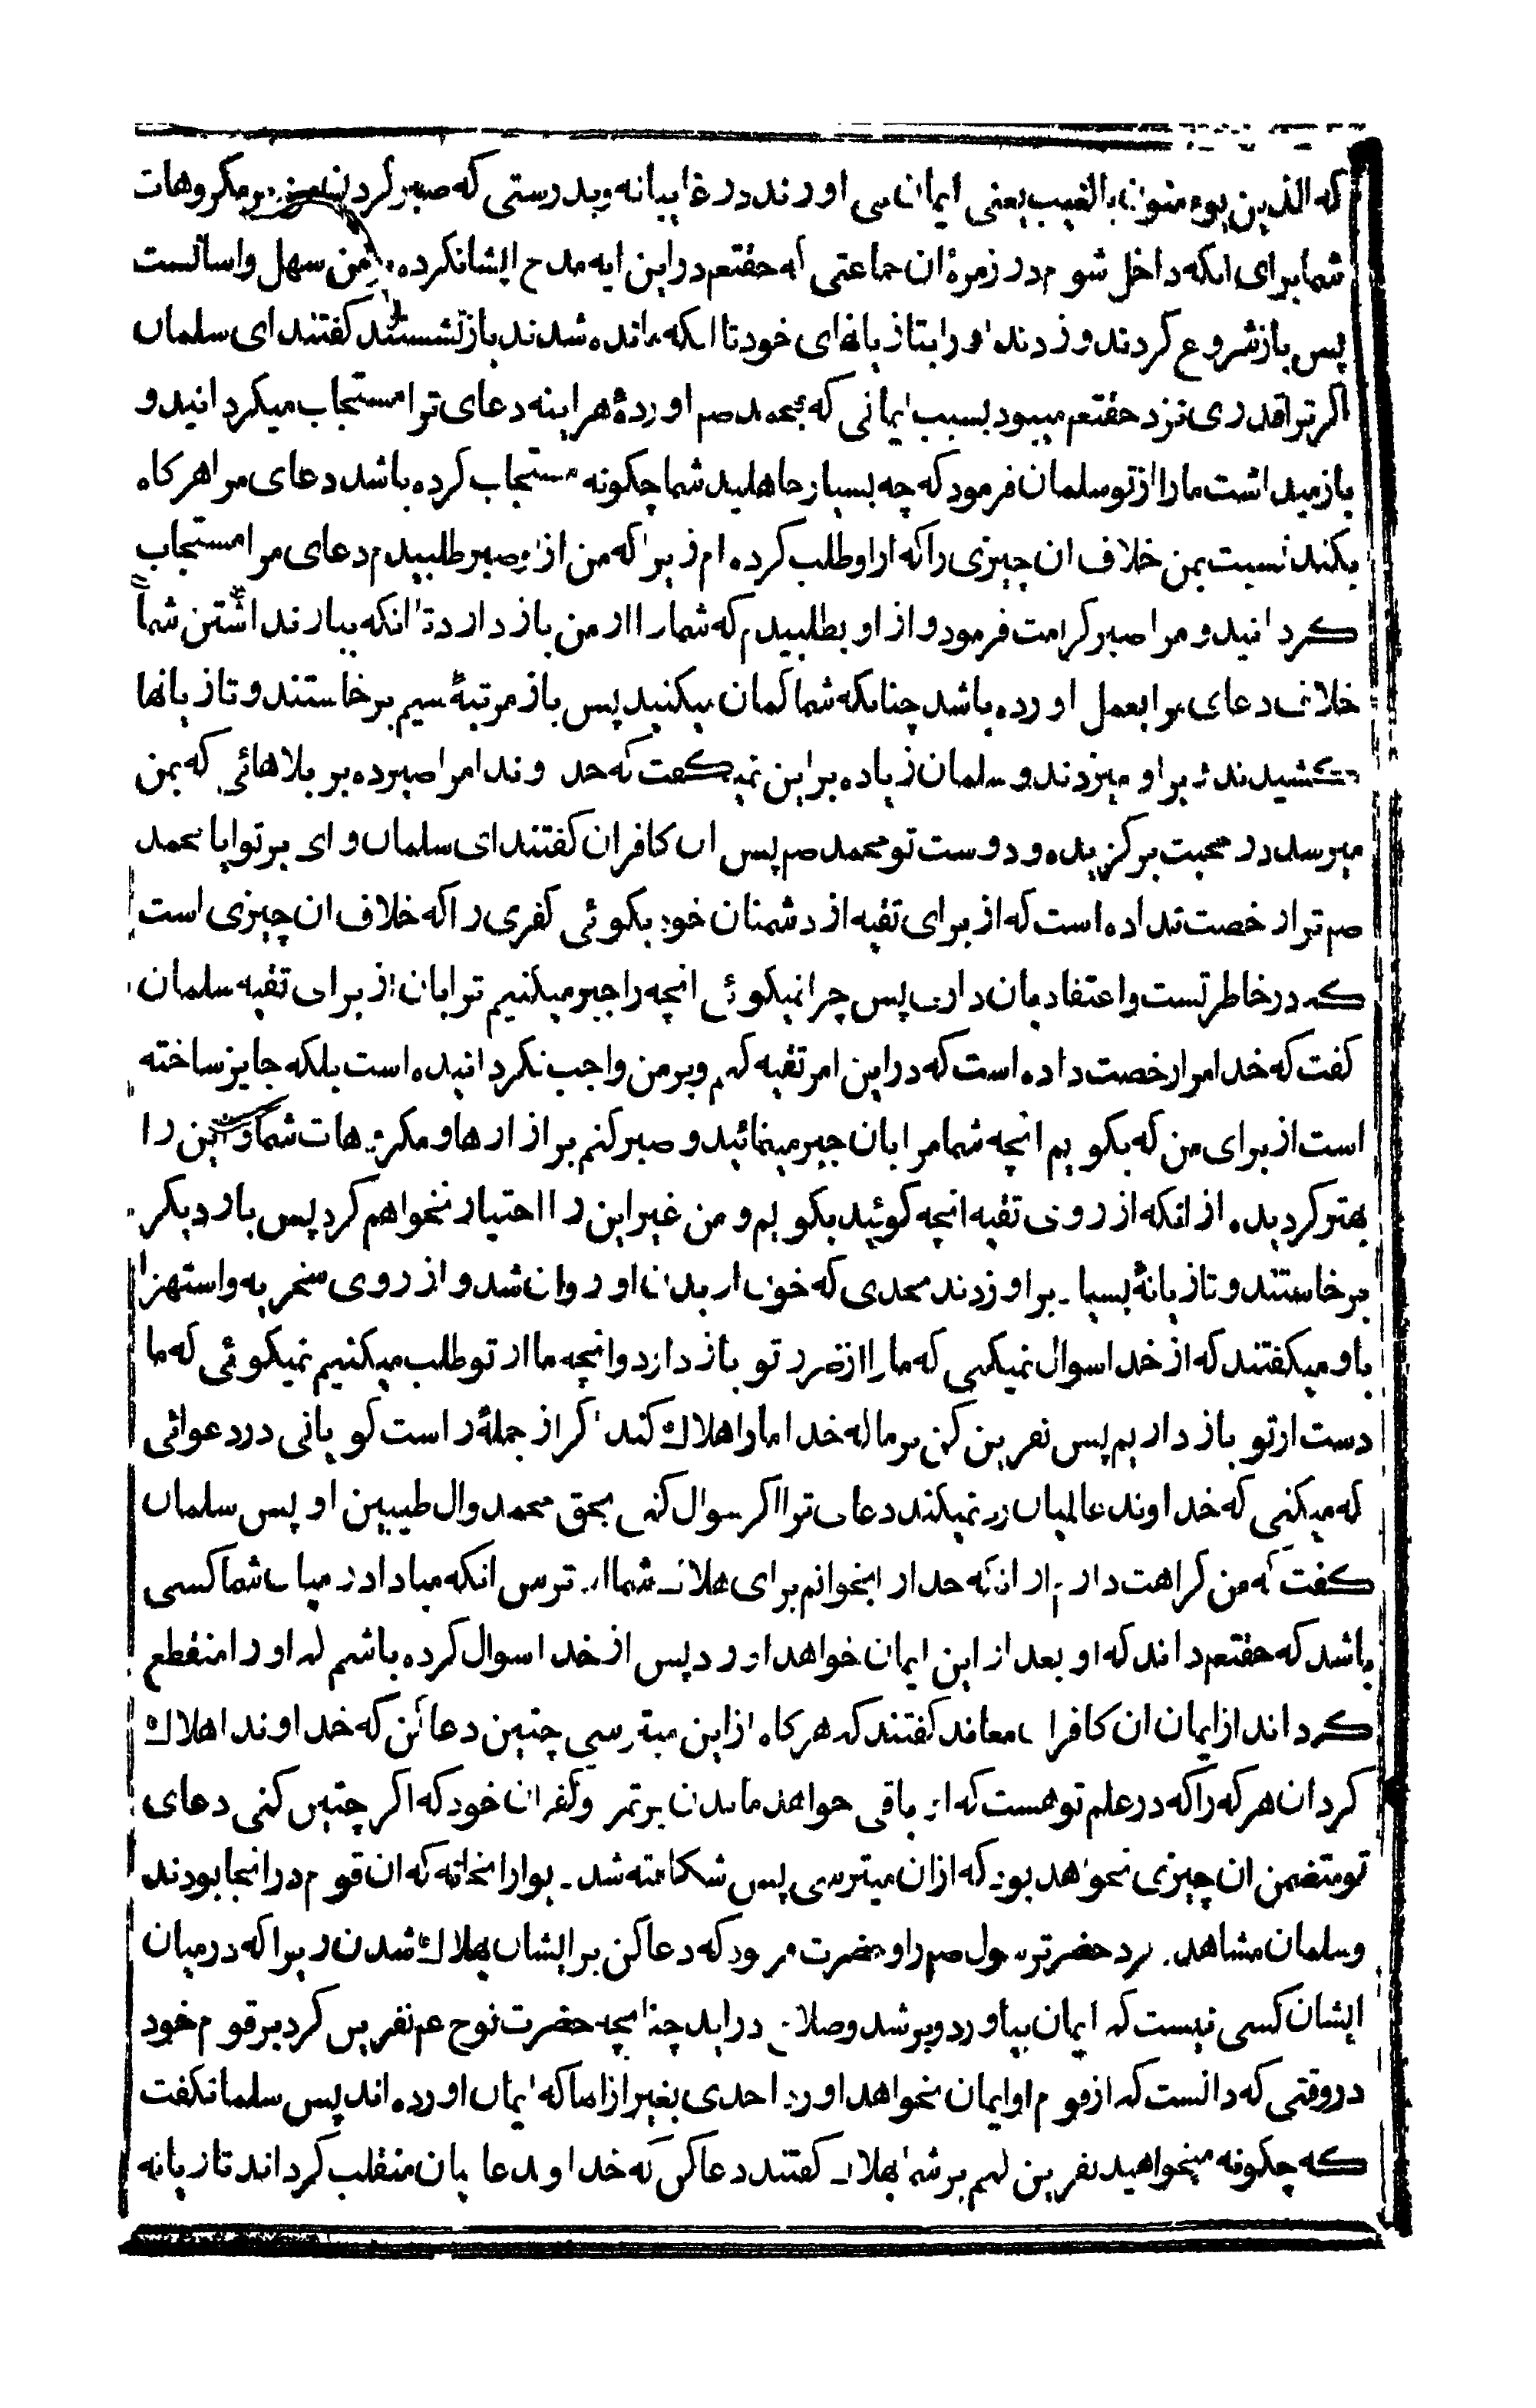 که الذین یؤمنون بالغیب یعنی ایمان می اورند در غایبانه وبدرستی که صبر کردن من بر مکروهات
شما برای انکه داخل شوم در زمرهٔ ان جماعتی که حقتعم در این ایه مدح ایشانکرده بر من سهل واسانست
پس باز شروع کردند و زدند او را بتازیانهای خود تا انکه مانده شدند باز نشستند کفتند ای سلمان
اکر ترا قدری نزد حقتعم میبود بسبب ایمانی که بمحمد صم اوردهٔ هراینه دعای ترا مستجاب میکردانید و
باز میداشت ما را از تو سلمان فرمود که چه بسیار جاهلید شما چکونه مستجاب کرده باشد دعای مرا هرکاه
بکند نسبت بمن خلاف ان چیزی را که از او طلب کرده ام زیرا که من از او صبر طلبیدم دعای مرا مستجاب
کردانید و مرا صبر کرامت فرمود و از او نطلبیدم که شما را از من باز دارد تا انکه بباز نداشتن شما
خلاف دعای مرا بعمل اورده باشد چنانکه شما کمان میکنید پس باز مرتبهٔ سیم برخاستند و تازیانها
کشیدند و بر او میزدند و سلمان زیاده براین نمیکفت که خداوندا مرا صبر ده بر بلاهائی که بمن
میرسد در محبت برکزیده و دوست تو محمد صم پس ان کافران کفتند ای سلمان وای بر تو ایا محمد
صم ترا رخصت نداده است که از برای تقیه از دشمنان خود بکوئی کفری را که خلاف ان چیزی است
که در خاطر تست واعتقاد بان داری پس چرا نمیکوئی انچه را جبر میکنیم ترا بان از برای تقیه سلمان
کفت که خدا مرا رخصت داده است که در این امر تقیه کنم و بر من واجب نکردانیده است بلکه جایز ساخته
است از برای من که بکویم انچه شما مرا بان جبر مینمائید و صبر کنم بر ازارها و مکروهات شما و این را
بهتر کردیده از انکه از روی تقیه انچه کوئید بکویم و من غیر این را اختیار نخواهم کرد پس بار دیکر
برخاستند و تازیانهٔ بسیار بر او زدند بحدی که خون از بدن او روان شد و از روی سخریه واستهزا
باو میکفتند که از خدا سوال نمیکنی که ما را از ضرر تو باز دارد وانچه ما از تو طلب میکنیم نمیکوئی که ما
دست از تو باز داریم پس نفرین کن بر ما که خدا ما را هلاک کند اکر از جملهٔ راست کویانی در دعوائی
که میکنی که خداوند عالمیان رد نمیکند دعای ترا اکر سوال کنی بحق محمد وال طیبین او پس سلمان
کفت که من کراهت دارم از انکه خدا را بخوانم برای هلاک شما از ترس انکه مبادا در میان شما کسی
باشد که حقتعم داند که او بعد از این ایمان خواهد اورد پس از خدا سوال کرده باشم که او را منقطع
کرداند از ایمان ان کافران معاند کفتند که هرکاه از این میترسی چنین دعا کن که خداوندا هلاک
کردان هر که را که در علم تو هست که او باقی خواهد ماندن بر تمرد و کفران خود که اکر چنین کنی دعای
تو متضمن ان چیزی نخواهد بود که ازان میترسی پس شکافته شد دیوار انخانه که ان قوم در انجا بودند
وسلمان مشاهده کرد حضرت رسول صم را و حضرت فرمود که دعا کن بر ایشان بهلاک شدن زیرا که در میان
ایشان کسی نیست که ایمان بیاورد و بر شد و صلاح دراید چنانچه حضرت نوح عم نفرین کرد بر قوم خود
در وقتی که دانست که از قوم او ایمان نخواهد اورد احدی بغیر از انها که ایمان اورده اند پس سلمان کفت
که چکونه میخواهید نفرین کنم بر شما بهلاک کفتند دعا کن که خداوند عا یان منقلب کرداند تازیانه